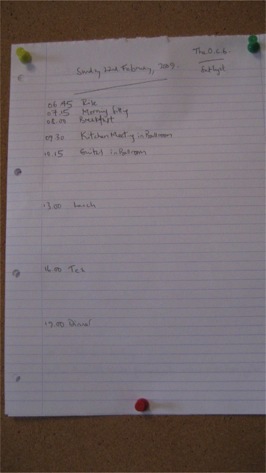 The O.L.6
Sunday 22nd February, 2009.
06.45 Rise
07.15 Morning
08.00 Breakfast
09.30 Kitchen Meeting in Ballroom
10.15 in Ballroom
13.00 Lunch
16.00 Tea
19.00 Dinner